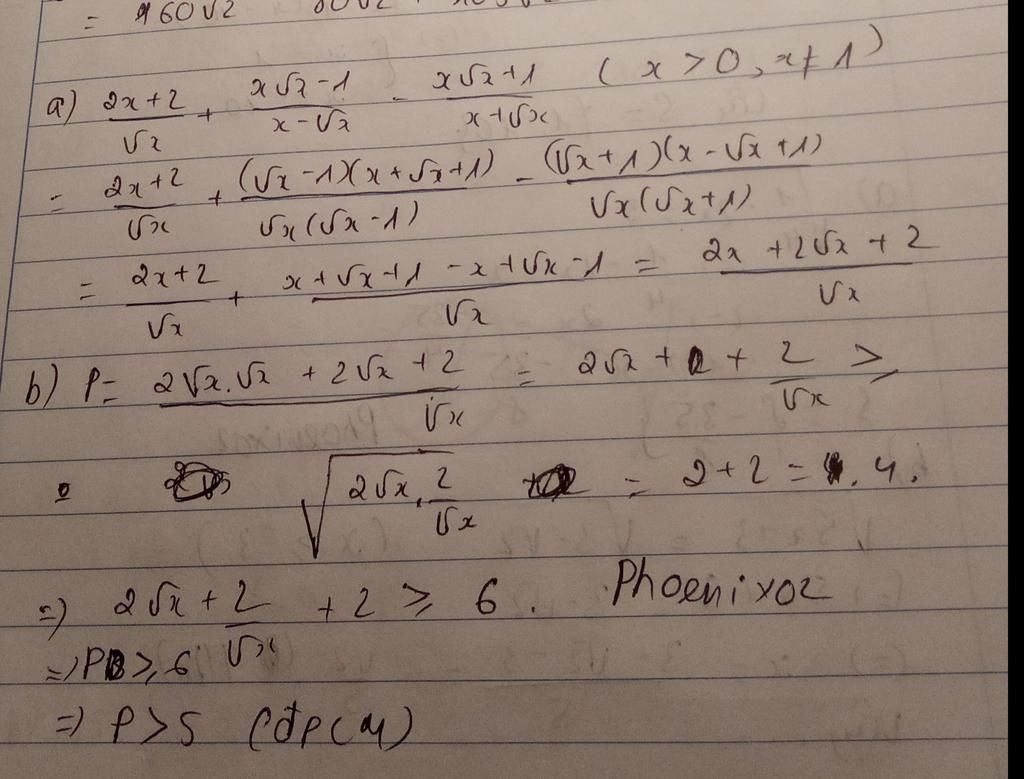 = 160√2 80√2
a) (2x+2)/√x + (x√x-1)/(x-√x) - (x√x+1)/(x+√x) ( x > 0, x ≠ 1 )
= (2x+2)/√x + (√x-1)(x+√x+1)/√x(√x-1) - (√x+1)(x-√x+1)/√x(√x+1)
= (2x+2)/√x + (x+√x+1-x+√x-1)/√x = (2x+2√x+2)/√x
b) P = (2√x.√x + 2√x + 2)/√x = 2√x + 2 + 2/√x ≥
√(2√x.2/√x) = 2+2 = 4.
=) 2√x + 2/√x + 2 ≥ 6. Phoenixoz
=) P ≥ 6
=) P > 5 (đpcm)